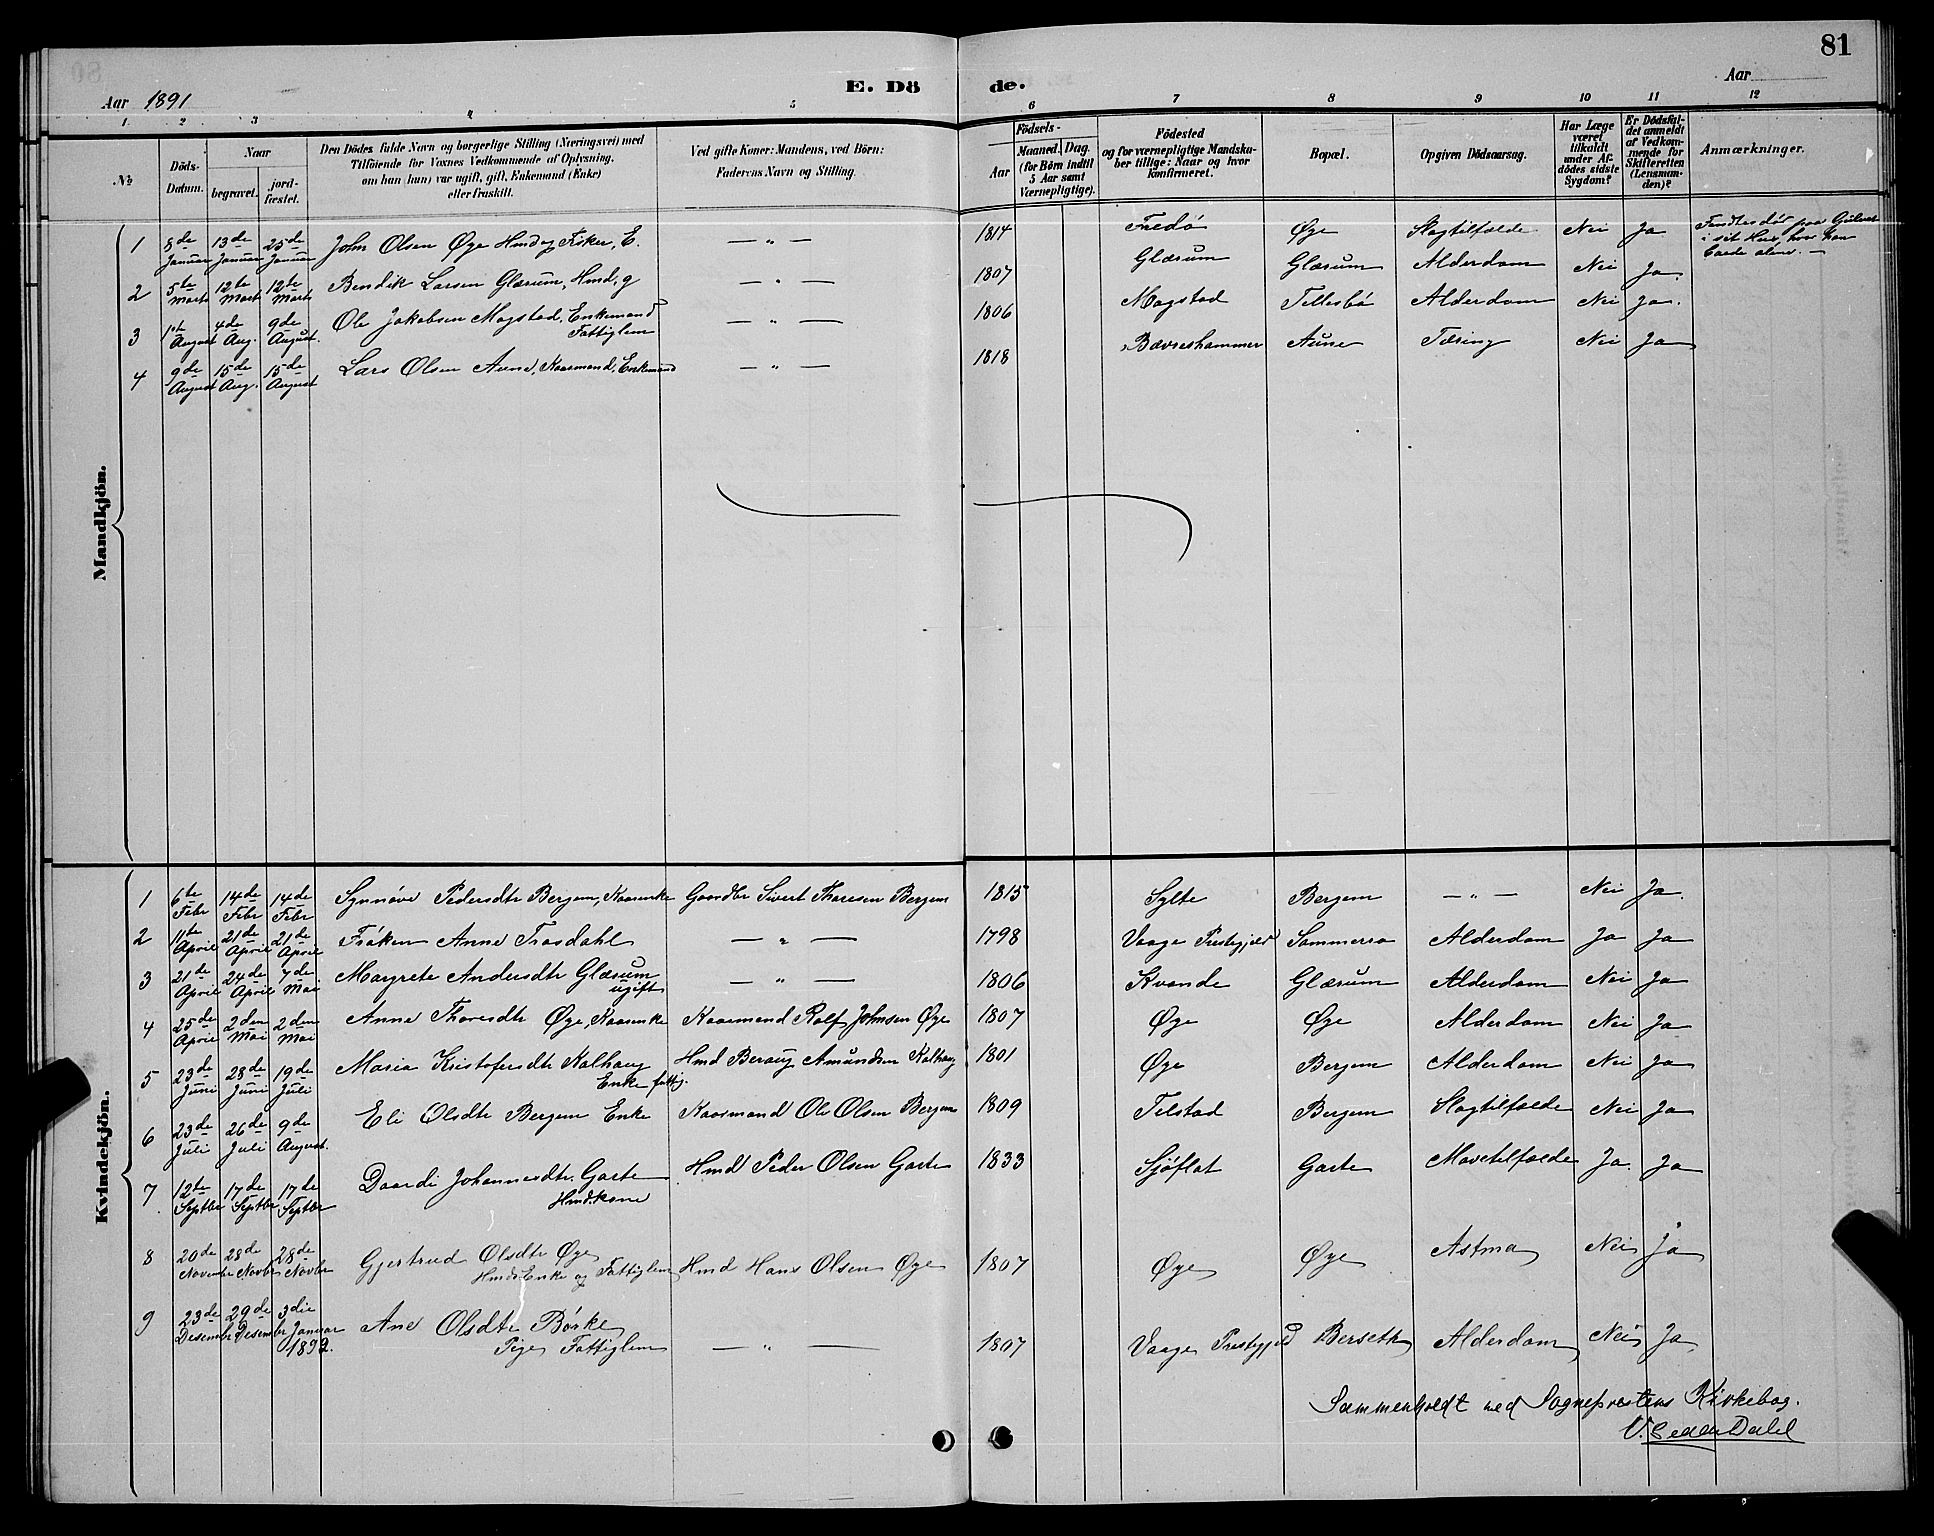 81
E. Dö de.
Aar 1891
Aar
1. 2 3 4 5 6 7 8 9 10 11 12
№
Döds-Datum.
Naar begravet. jord-fæstet.
Den Dödes fulde Navn og borgerlige Stilling (Næringsvei) med Tilföiende for Voxnes Vedkommende af Oplysning, om han (hun) var ugift, gift, Enkemand (Enke) eller fraskilt.
Ved gifte Koner: Mandens, ved Börn: Faderens Navn og Stilling.
Födsels-
Aar Maaned. Dag. (for Börn indtil 5 Aar samt Værnepligtige).
Födested og for værnepligtige Mandskaber tillige: Naar og hvor konfirmeret.
Bopæl.
Opgiven Dödsaarsag.
Har Læge været tilkaldt under Afdödes sidste Sygdom?
Er Dödsfaldet anmeldt af Vedkommende for Skifteretten (Lensmanden)?
Anmærkninger.
Mandkjön.
1 8de Januar 13de Januar 25de Januar John Olsen Øye Hmd og Fisker, E. — " — 1814 Fredø Øye Slagtilfælde Nei Ja Fandtes død paa Gulvet i sit Hus, hvor han boede alene. —
2 5te Marts 12te Marts 12te Marts Bendik Larsen Glærum, Hmd, g — " — 1807 Glærum Glærum Alderdom Nei Ja.
3 1ste August 4de Aug. 9de August. Ole Jakobsen Mogstad, Enkemand Fattiglem — " — 1806 Mogstad Tellesbø Alderdom Nei Ja.
4 9de August 15de Aug. 15de August Lars Olsen Aune, Kaarmand, Enkemand — " — 1818 Bævreshammer Aune Tæring Nei Ja
Kvindekjön.
1 6te Febr 14de Febr 14de Febr Synnøve Pedersdtr Bergem, Kaarenke Gaardbr Sivert Thoresen Bergem 1815 Sylte Bergem — " — Nei Ja.
2 11te April 21de April 21de April Frøken Anne Trosdahl — " — 1798 Vaage Prestegjeld Sommerro Alderdom Ja Ja
3 21de April 24de April 7de Mai Margrete Andersdtr Glærum ugift — " — 1806 Kvande Glærum Alderdom Nei Ja
4 25de April 2den Mai 2den Mai Anne Thoresdtr Øye, Kaarenke Kaarmand Rolf Johnsen Øye 1807 Øye Øye Alderdom Nei Ja
5 23de Juni 28de Juni 19de Juli Maria Kristofersdtr Kalhaug Enke fattig. Hmd Beraug Amundsen Kalhaug 1801 Øye Bergem Alderdom Nei Ja
6 23de Juli 26de Juli 9de August. Eli Olsdtr Bergem Enke Kaarmand Ole Olsen Bergem 1809 Telstad Bergem Slagtilfælde Nei Ja
7 12te Septbr 17de Septbr 17de Septbr Daardi Johannesdtr. Garte Hmd.kone Hmd Peder Olsen Garte 1833 Sjøflot Garte Mavetilfælde Ja. Ja
8 20de November 28de Novbr 28de Novbr Gjertrud Olsdtr Øye Hmds Enke og Fattiglem Hmd Hans Olsen Øye 1807 Øye Øye Astma Nei Ja
9 23de Desembr 29de Desembr 3die Januar 1892. Ane Olsdtr Børke Pige, Fattiglem — " — 1807 Vaage Prestegjeld Berseth Alderdom Nei Ja
Sammenholdt med Sogneprestens Kirkebog.